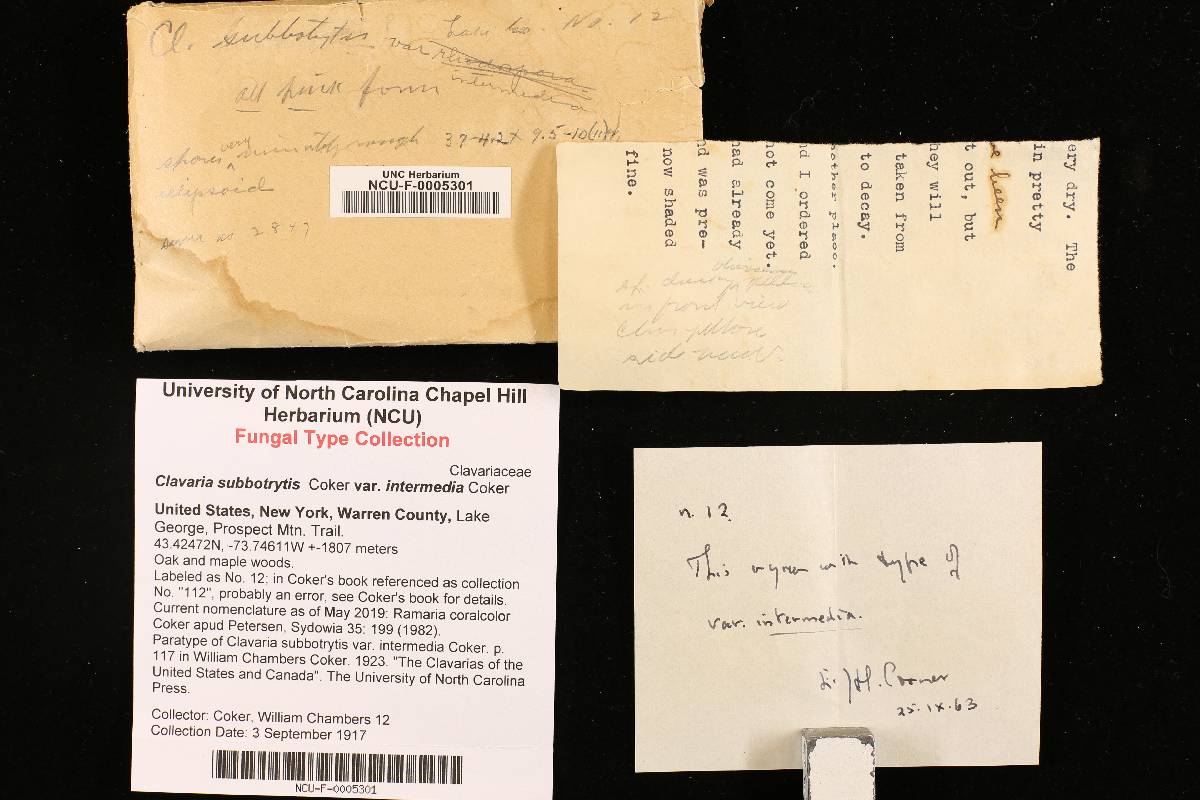 Cl. subbotytis Lake No. 12
var rhodospora
intermedia
all pink form
spores very minutely rough 3.7-4.2 x 9.5-10(11)
ellipsoid
no 2847
UNC Herbarium
NCU-F-0005301
ery dry. The
in pretty
been
t out, but
hey will
taken from
to decay.
nother place.
nd I ordered
not come yet.
had already
nd was pre-
now shaded
fine.
in front view
side
University of North Carolina Chapel Hill
Herbarium (NCU)
Fungal Type Collection
Clavariaceae
Clavaria subbotrytis Coker var. intermedia Coker
United States, New York, Warren County, Lake
George, Prospect Mtn. Trail.
43.42472N, -73.74611W +-1807 meters
Oak and maple woods.
Labeled as No. 12; in Coker's book referenced as collection
No. "112", probably an error, see Coker's book for details.
Current nomenclature as of May 2019: Ramaria coralcolor
Coker apud Petersen, Sydowia 35: 199 (1982).
Paratype of Clavaria subbotrytis var. intermedia Coker. p.
117 in William Chambers Coker. 1923. "The Clavarias of the
United States and Canada". The University of North Carolina
Press.
Collector: Coker, William Chambers 12
Collection Date: 3 September 1917
NCU-F-0005301
n. 12
This agrees with type of
var. intermedia.
Corner
25.IX.63